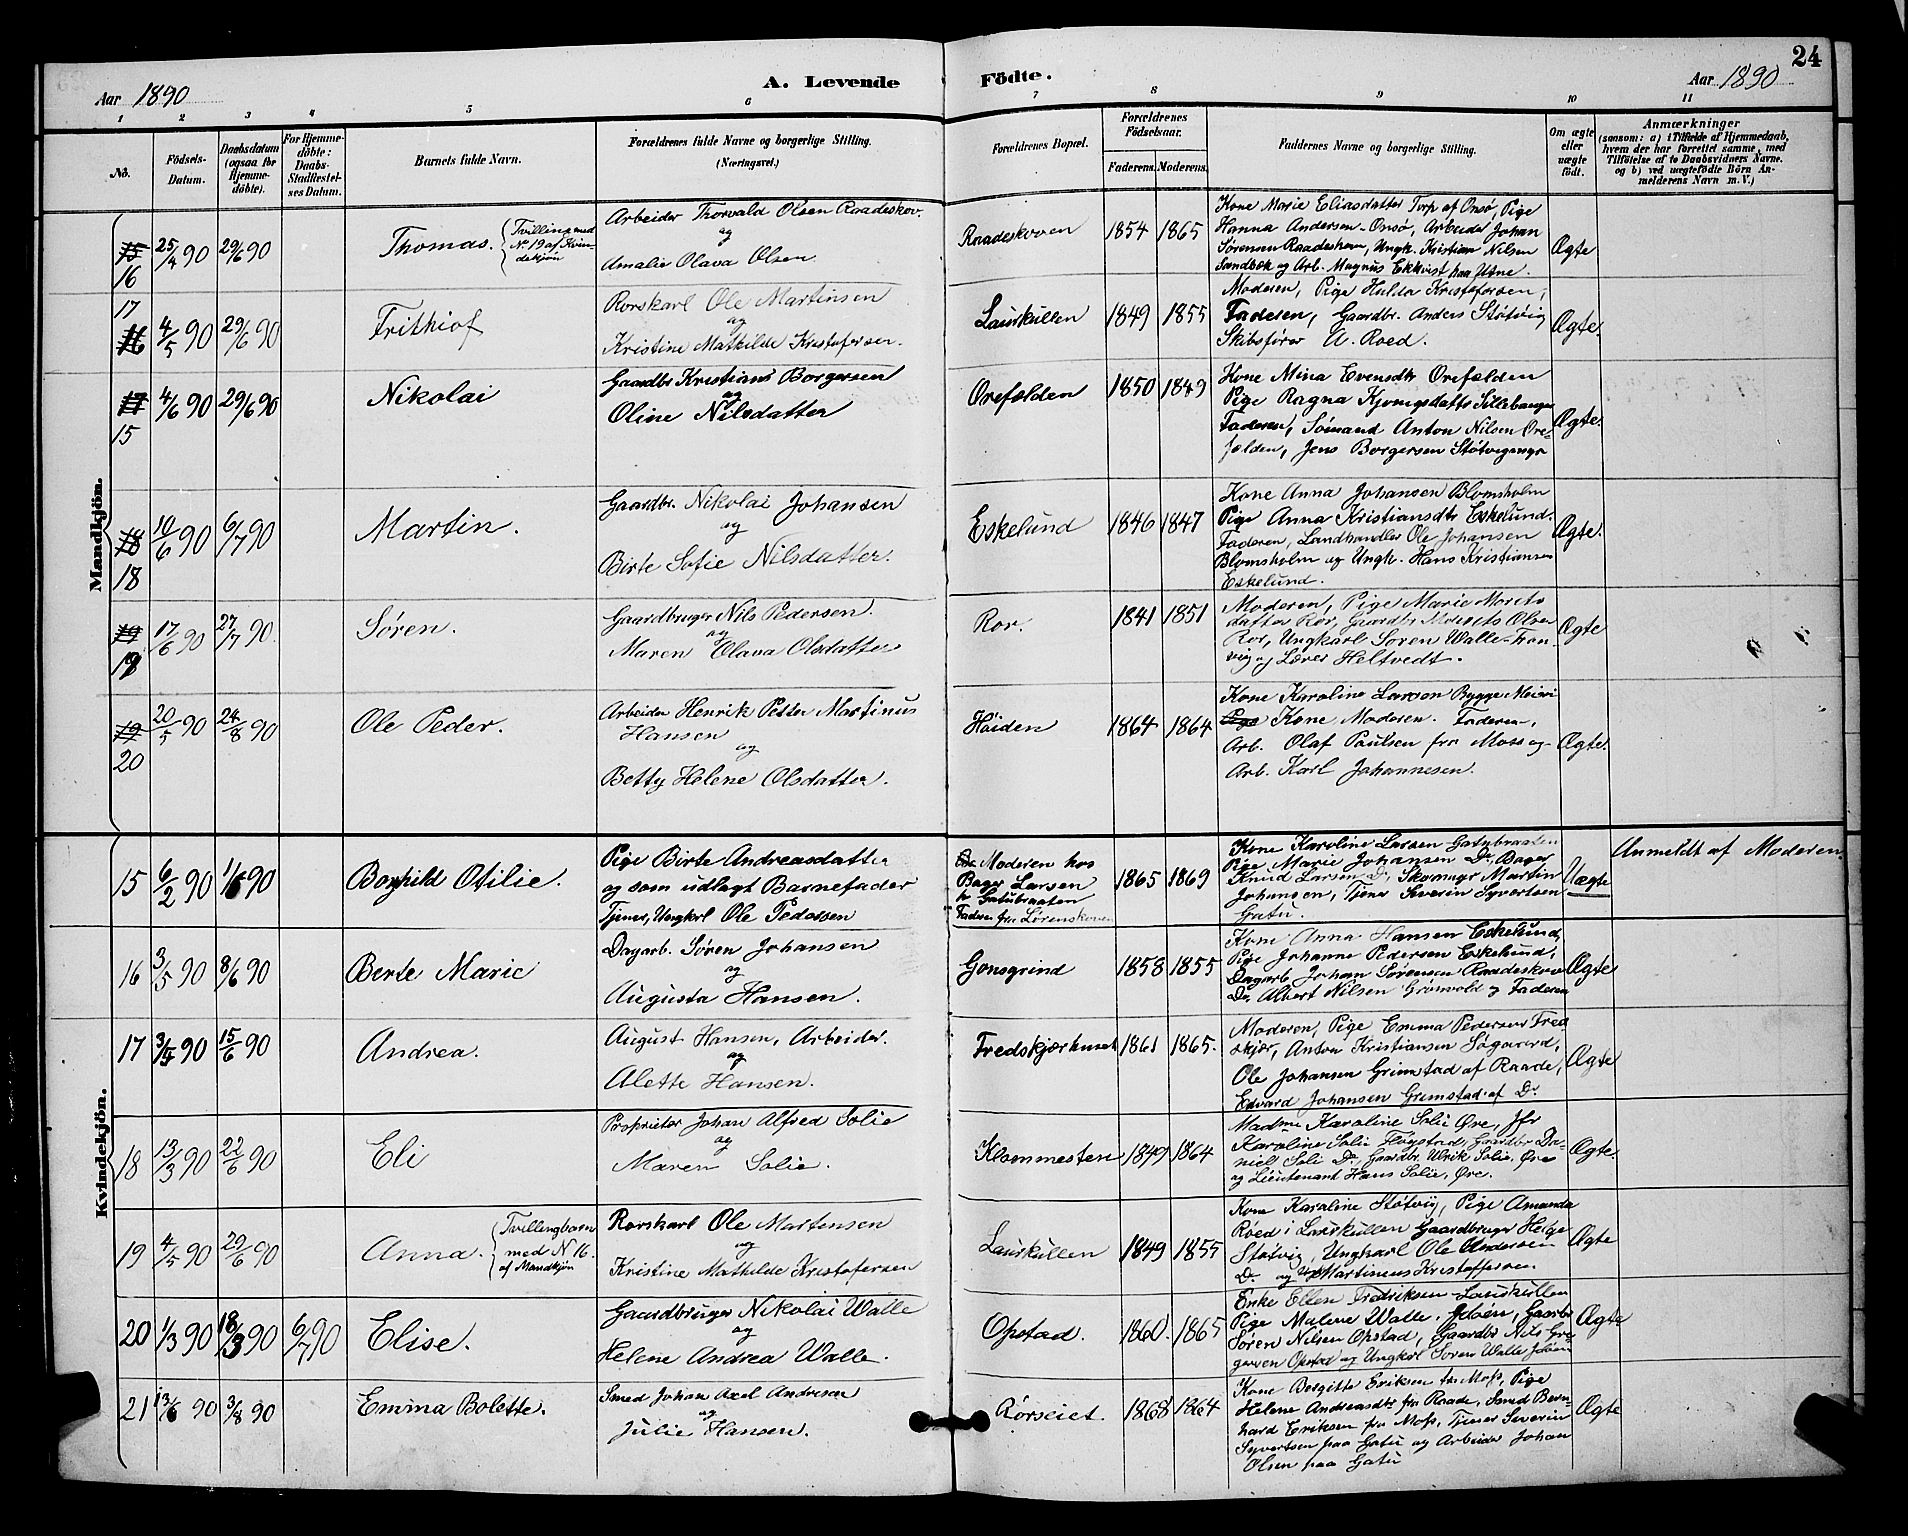 24
Aar 1890
A. Levende
Födte.
Aar 1890
1 2 3 4 5 6 7 8 9 10 11
No.
Födsels-
Datum.
Daabsdatum
(ogsaa for
Hjemme-
döbte).
For Hjemme-
döbte:
Daabs-
Stadfæstel-
ses Datum.
Barnets fulde Navn.
Forældrenes fulde Navne og borgerlige Stilling.
(Næringsvei.)
Forældrenes Bopæl.
Forældrenes
Födselsaar.
Faderens. Moderens.
Faddernes Navne og borgerlige Stilling.
Om ægte
eller
uægte
födt.
Anmærkninger
(saasom: a) i Tilfælde af Hjemmedaab,
hvem der har forrettet samme, med
Tilföielse af to Daabsvidners Navne.
og b) ved uægtefödte Börn An-
melderens Navn m. V.)
Mandkjön.
15
16
25/4 90
29/6 90
Thomas.
Tvilling med
No 19 af Kvin-
dekjön
Arbeider Thorvald Olsen Raadeskov.
og
Amalie Olava Olsen
Raadeskoven
1854
1865
Kone Marie Eliasdatter Torp af Onsö, Pige
Hanna Andersen Onsö, Arbeider Johan
Sörensen Raadeskoven, Ungk. Kristian Nilsen
Sandbæk og Arb. Magnus Ekkvist paa
Ægte
17
16
4/5 90
29/6 90
Frithiof
Rorskarl Ole Martinsen
og
Kristine Mathilde Kristofersen.
Laurkullen
1849
1855
Moderen, Pige Hulda Kristofersen,
Faderen, Gaardbr. Anders Stötvig
Skibsförer A. Roed.
Ægte.
17
15
4/6 90
29/6 90
Nikolai
Gaardbr Kristians Borgersen
og
Oline Nilsdatter
Orefælden
1850
1849
Kone Mina Evensdtr Orefælden
Pige Ragna
Faderen, Sömand Anton Nilsen Ore-
fælden, Jens Borgersen Stötvig
Ægte.
18
18
10/6 90
6/7 90
Martin.
Gaardbr. Nikolai Johansen
og
Birte Sofie Nilsdatter.
Eskelund
1846
1847
Kone Anna Johansen Blomsholm
Pige Anna Kristiansdtr Eskelund.
Faderen, Landhandler Ole Johansen
Blomsholm og Ungk. Hans Kristiansen
Eskelund.
Ægte.
19
19
17/6 90
27/7 90.
Sören.
Gaardbruger Nils Pedersen.
og
Maren Olava Olsdatter
Ror.
1841
1851
Moderen, Pige Marie Morits
datter Ror, Gaardbr Morits Olsen
Ror, Ungkarl Soren Walle
og Lærer Heltvedt.
Ægte
19
20
20/5 90
24/8 90
Ole Peder.
Arbeider Henrik Petter Martinus
Hansen
og
Betty Helene Olsdatter.
Höiden
1864
1864
Kone Karoline Larsen Bygge Meieri
Pige Kone Moderen. Faderen,
Arb. Olaf Paulsen fra Moss og
Arb. Karl Johannesen.
Ægte.
Kvindekjön.
15
6/2 90
1/6 90
Borghild Otilie.
Pige Birte Andreasdatter
og som udlagt Barnefader
Tjener, Ungkarl Ole Pedersen
Moderen hos
Bager Larsen
Gatubraaten
Faderen fra Lörenskoven
1865
1869
Kone Karoline Larsen Gatubraaten
Pige Marie Johansen Do, Bager
Knud Larsen Do, Skomagr Martin
Johansen, Tjener Severin Syvertsen
Gatu.
Uægte
Anmeldt af Moderen.
16
3/5 90
8/6 90
Berte Marie
Dagarb. Sören Johansen
og
Augusta Hansen.
Gonsgrind
1858
1855
Kone Anna Hansen Eskelund,
Pige Johanne Pedersen Eskelund,
Dagarb Johan Sörensen Raadeskove
Do. Albert Nilsen Grönvold og Faderen
Ægte
17
3/4 90
15/6 90
Andrea.
August Hansen, Arbeider.
og
Alette Hansen.
Fredskjærhuset
1861
1865.
Moderen, Pige Emma Pedersen Fred
skjær, Anton Kristiansen Søgaard,
Ole Johansen Grimstad af Raade,
Edvard Johansen Grimstad af Do
Ægte
18
13/3 90
22/6 90
Eli
Proprietær Johan Alfred Solie
og
Maren Solie.
Klommesten
1849
1864
Madme Karoline Solie Øre, Jfr
Karoline Solie Flogstad, Gaardbr Da-
niel Soli Do, Gaardbr Ulrik Solie, Øre
og Lieutenant Hans Solie, Øre.
Ægte.
19
4/5 90
29/6 90
Anna.
Tvillingbarn
med N 16.
af Mandkjön
Rorskarl Ole Martinsen
og
Kristine Mathilde Kristofersen
Laurkullen
1849
1855
Kone Karoline Stötvig, Pige Amanda
Röed i Laurkullen Gaardbruger Helge
Stötvig, Ungkarl Ole Andersen
Do og Martinius Kristoffersen.
Ægte
20
1/3 90
18/3 90
6/7 90
Elise.
Gaardbruger Nikolai Walle
og
Helene Andrea Walle.
Opstad.
1860.
1865
Enke Ellen Fredriksen Laurkullen
Pige Malene Walle, Jeløen, Gaardbr
Sören Nilsen Opstad, Gaardbr Nils Gre-
gersen Opstad og Ungkarl Soren Walle Jeløen
Ægte
21
13/6 90
3/8 90
Emma Bolette.
Smed Johan Axel Andresen
og
Julie Hansen.
Rörseiet.
1868
1864
Kone Bergitte Eriksen fra Moss, Pige
Helene Andreasdtr fra Raade, Smed Bern-
hard Eriksen fra Moss, Tjener Severin
Syvertsen paa Gatu og Arbeider Johan
Olsen paa Gatu
Ægte